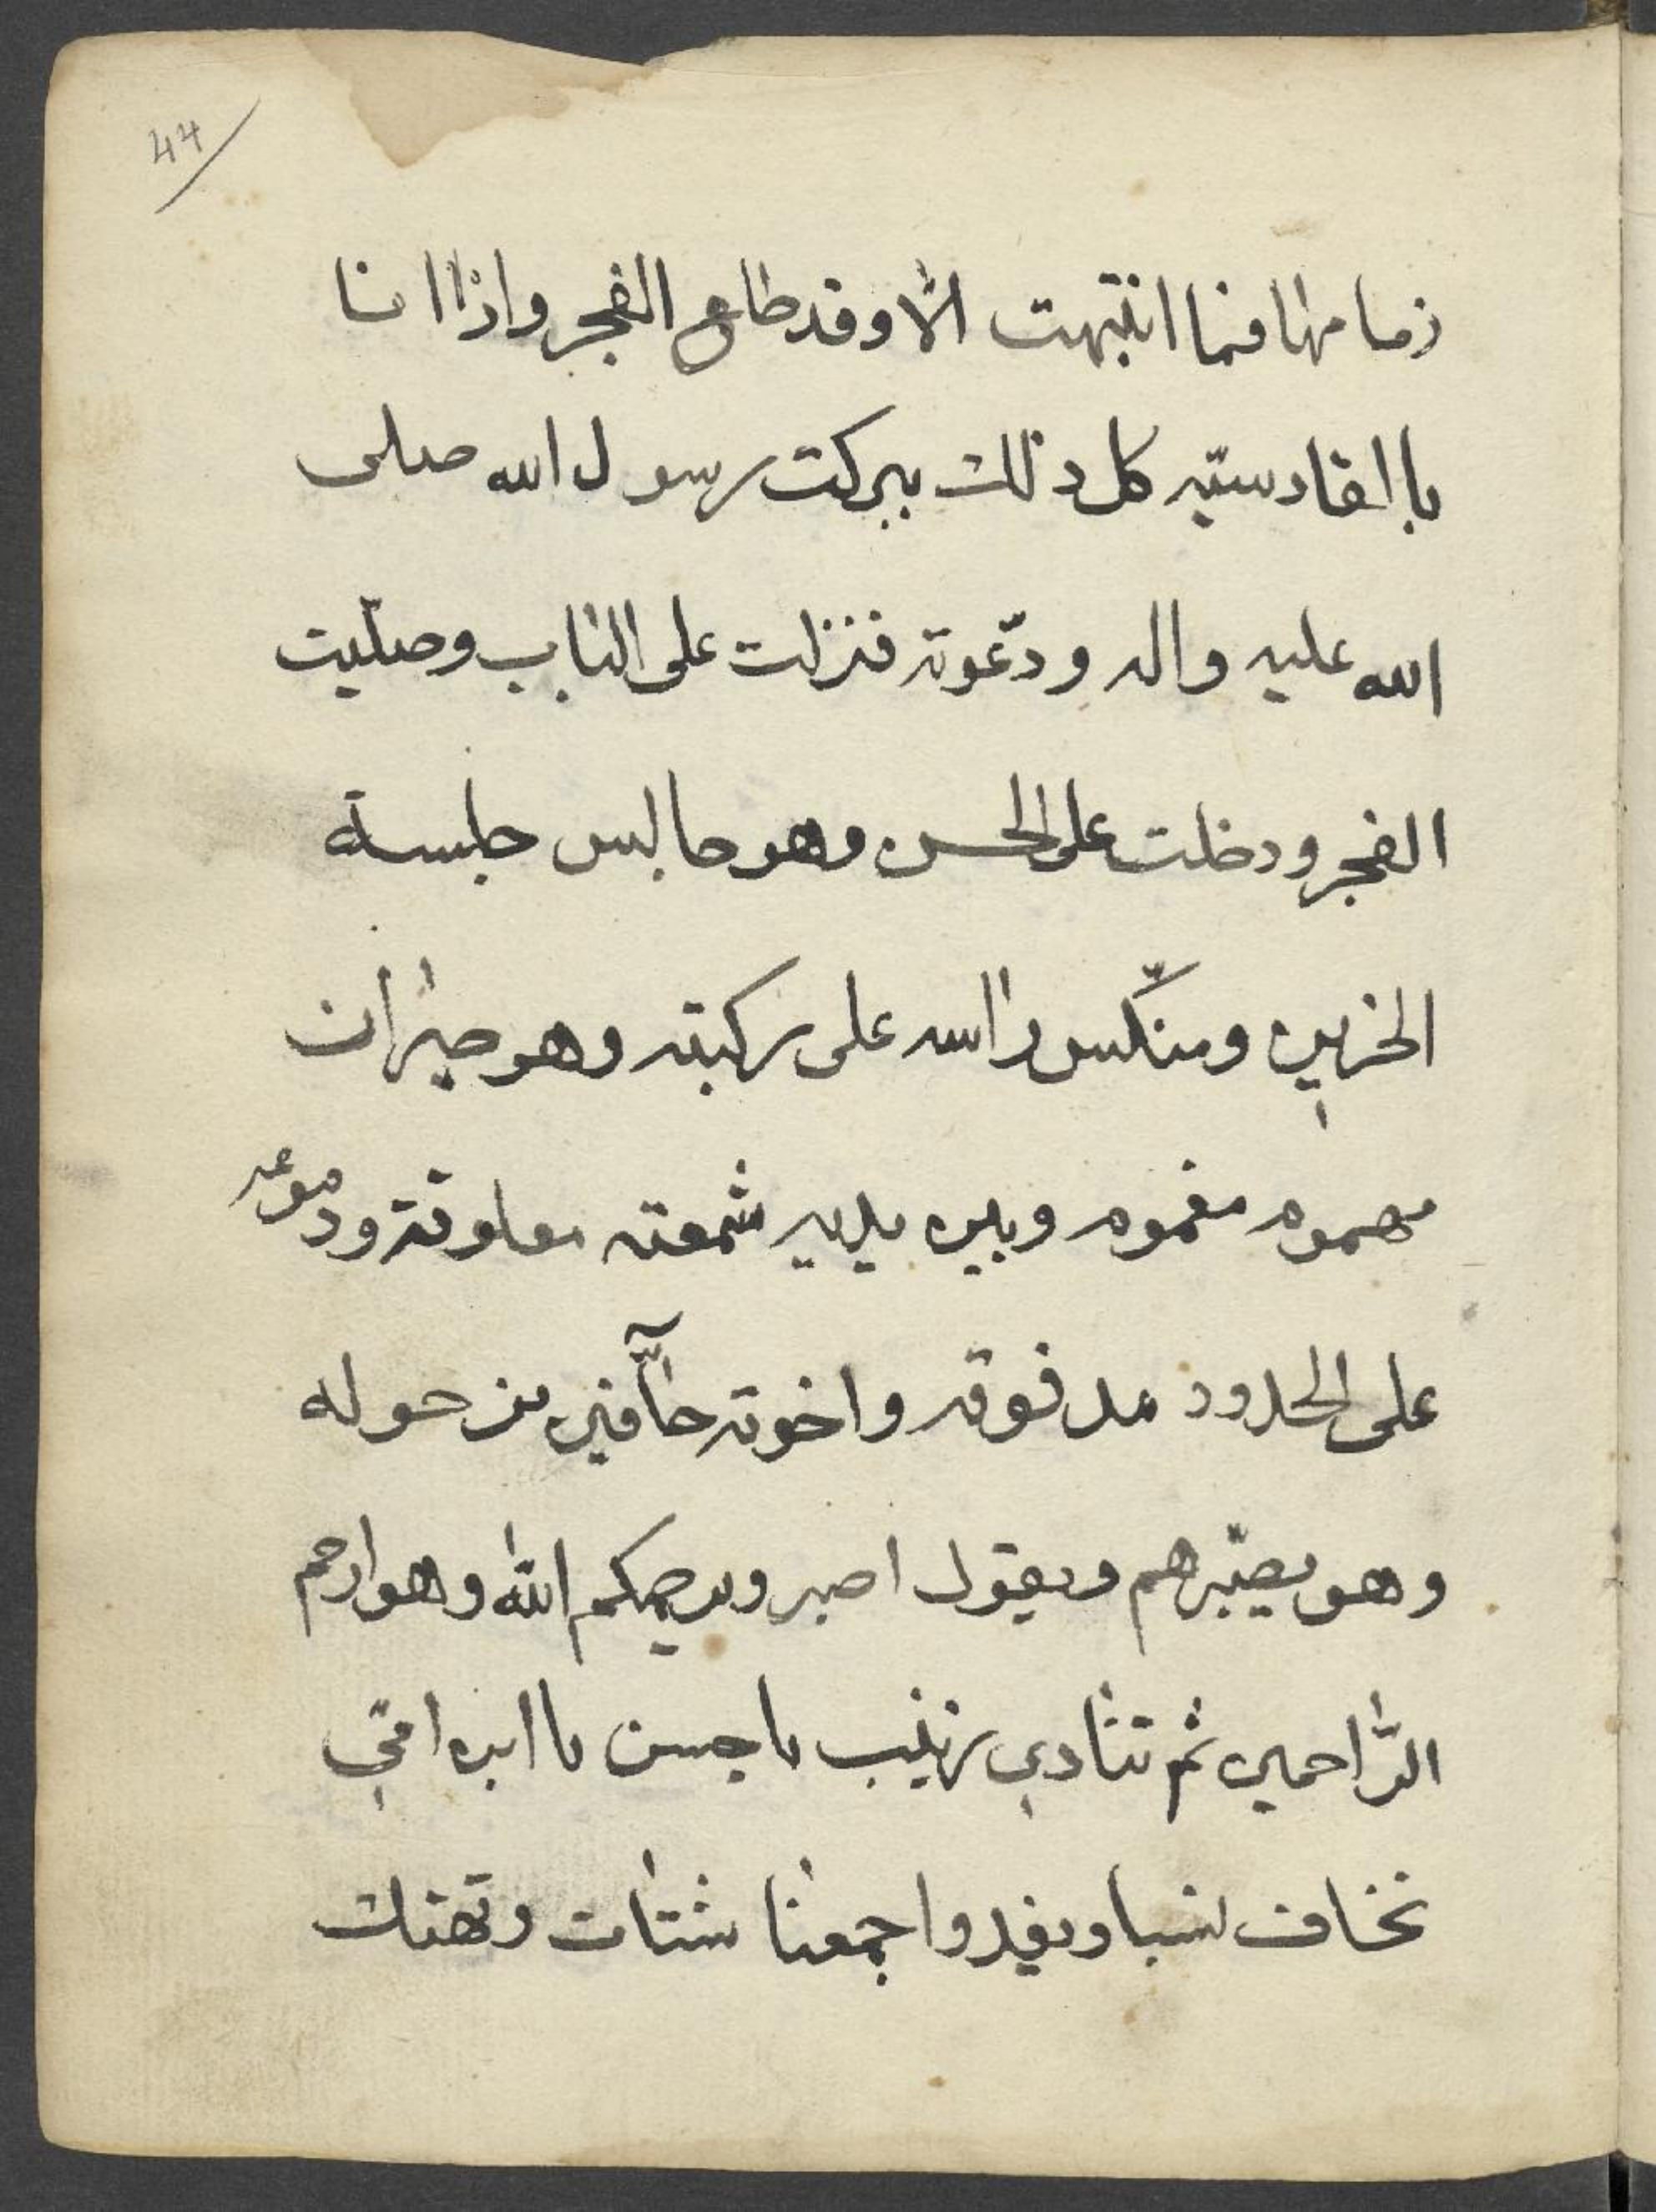 44
زمامها فما انتبهت الّا وقد طلع الفجر واذا انا
باالقادسيّه كل ذلك ببركت رسول الله صلى
الله عليه واله ودّعوته فنزلت على الباب وصلّيت
الفجر ودخلت على الحسن وهو جالس جلسة
الحزين ومنكّس رااسه على ركبته وهو حيران
مهموم مغموم وبين يديه شمعته معلوقة ودموعه
على الخدود مدفوقه واخوته حآفّين من حوله
وهو يصبّرهم ويقول اصبرو يرحمكم الله وهو ارحم
الرّاحمين ثم تنادي زينب يا حسن يا ابن امّي
نخاف نسبا ويغدوا جمعنا شتات وتهتك